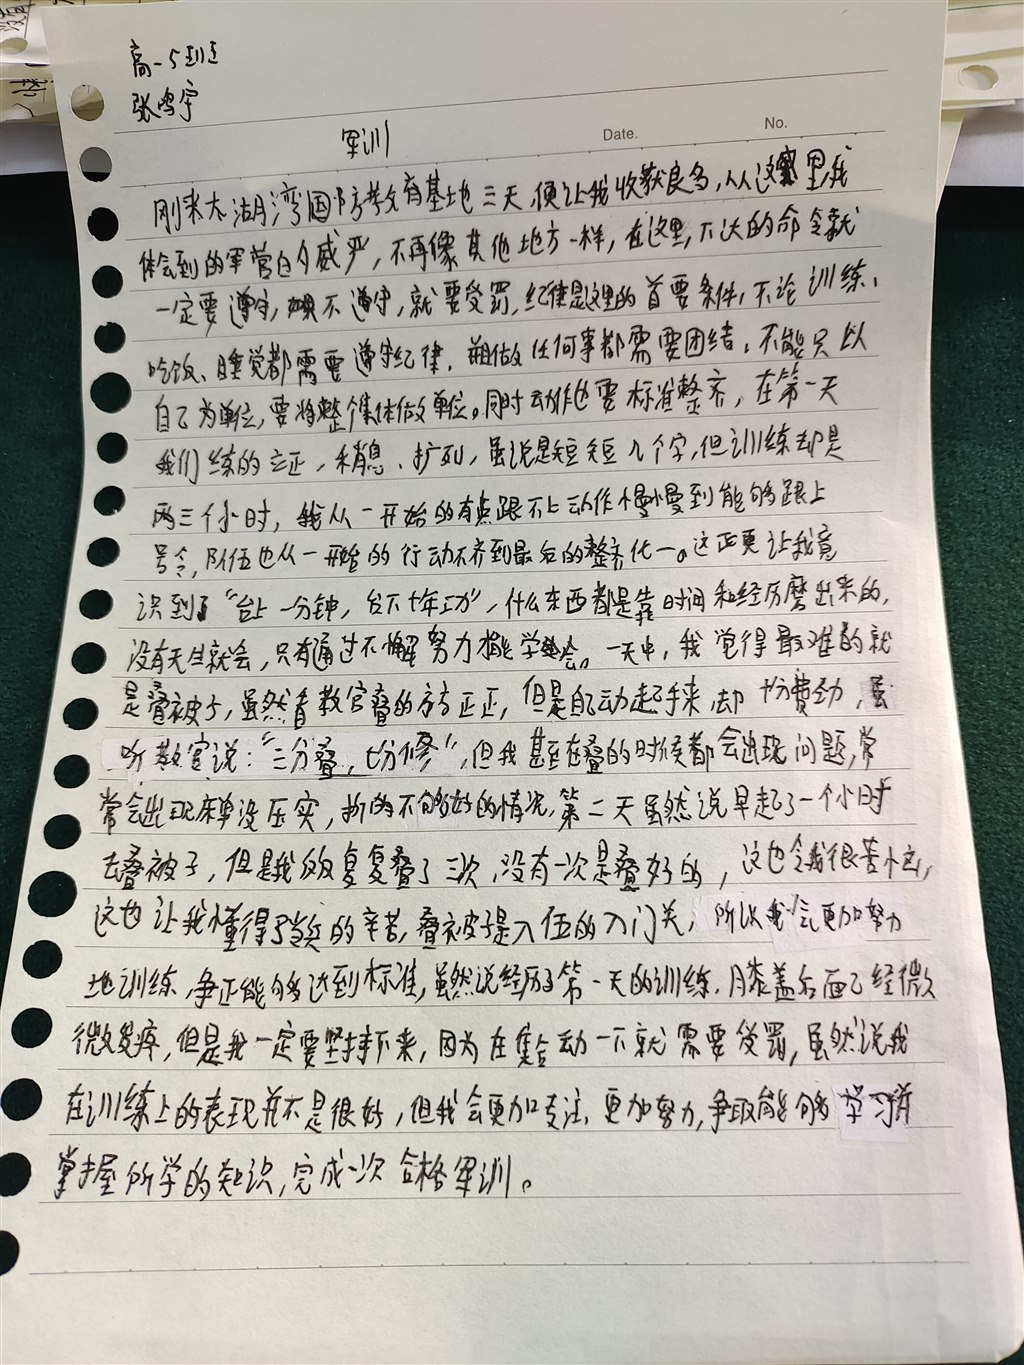 高一5班
张鸣宇
Date.
No.
军训
刚来太湖湾国防教育基地三天,便让我收获良多,从这里我
体会到的军营的威严,不再像其他地方一样,在这里,下达的命令就
一定要遵守,如果不遵守,就要受罚,纪律是这里的首要条件,不论训练、
吃饭、睡觉都需要遵守纪律,做任何事都需要团结,不能只以
自己为单位,要将整个集体做单位。同时动作也要标准整齐,在第一天
我们练的立正,稍息、扩列,虽说是短短几个字,但训练却是
两三个小时,我从一开始的有点跟不上动作慢慢到能够跟上
号令,队伍也从一开始的行动不齐到最后的整齐化一。这正更让我意
识到了“台上一分钟,台下十年功”,什么东西都是靠时间和经历磨出来的,
没有天生就会,只有通过不懈努力才能学会。一天中,我觉得最难的就
是叠被子,虽然看教官叠的方方正正,但是自己动起手来,却十分费劲,虽
听教官说:“三分叠,七分修”,但我甚至在叠的时候都会出现问题,常
常会出现床单没压实,折的不够好的情况,第二天虽然说早起了一个小时
去叠被子,但是我反反复复叠了三次,没有一次是叠好的,这也令我很苦恼,
这也让我懂得了当兵的辛苦,叠被子是入伍的入门关,所以我会更加努力
地训练,争正能够达到标准,虽然说经历了第一天的训练,膝盖后面已经微
微发疼,但是我一定要坚持下来,因为在集合动一下就需要受罚,虽然说我
在训练上的表现并不是很好,但我会更加专注,更加努力,争取能够学习并
掌握所学的知识,完成一次合格军训。